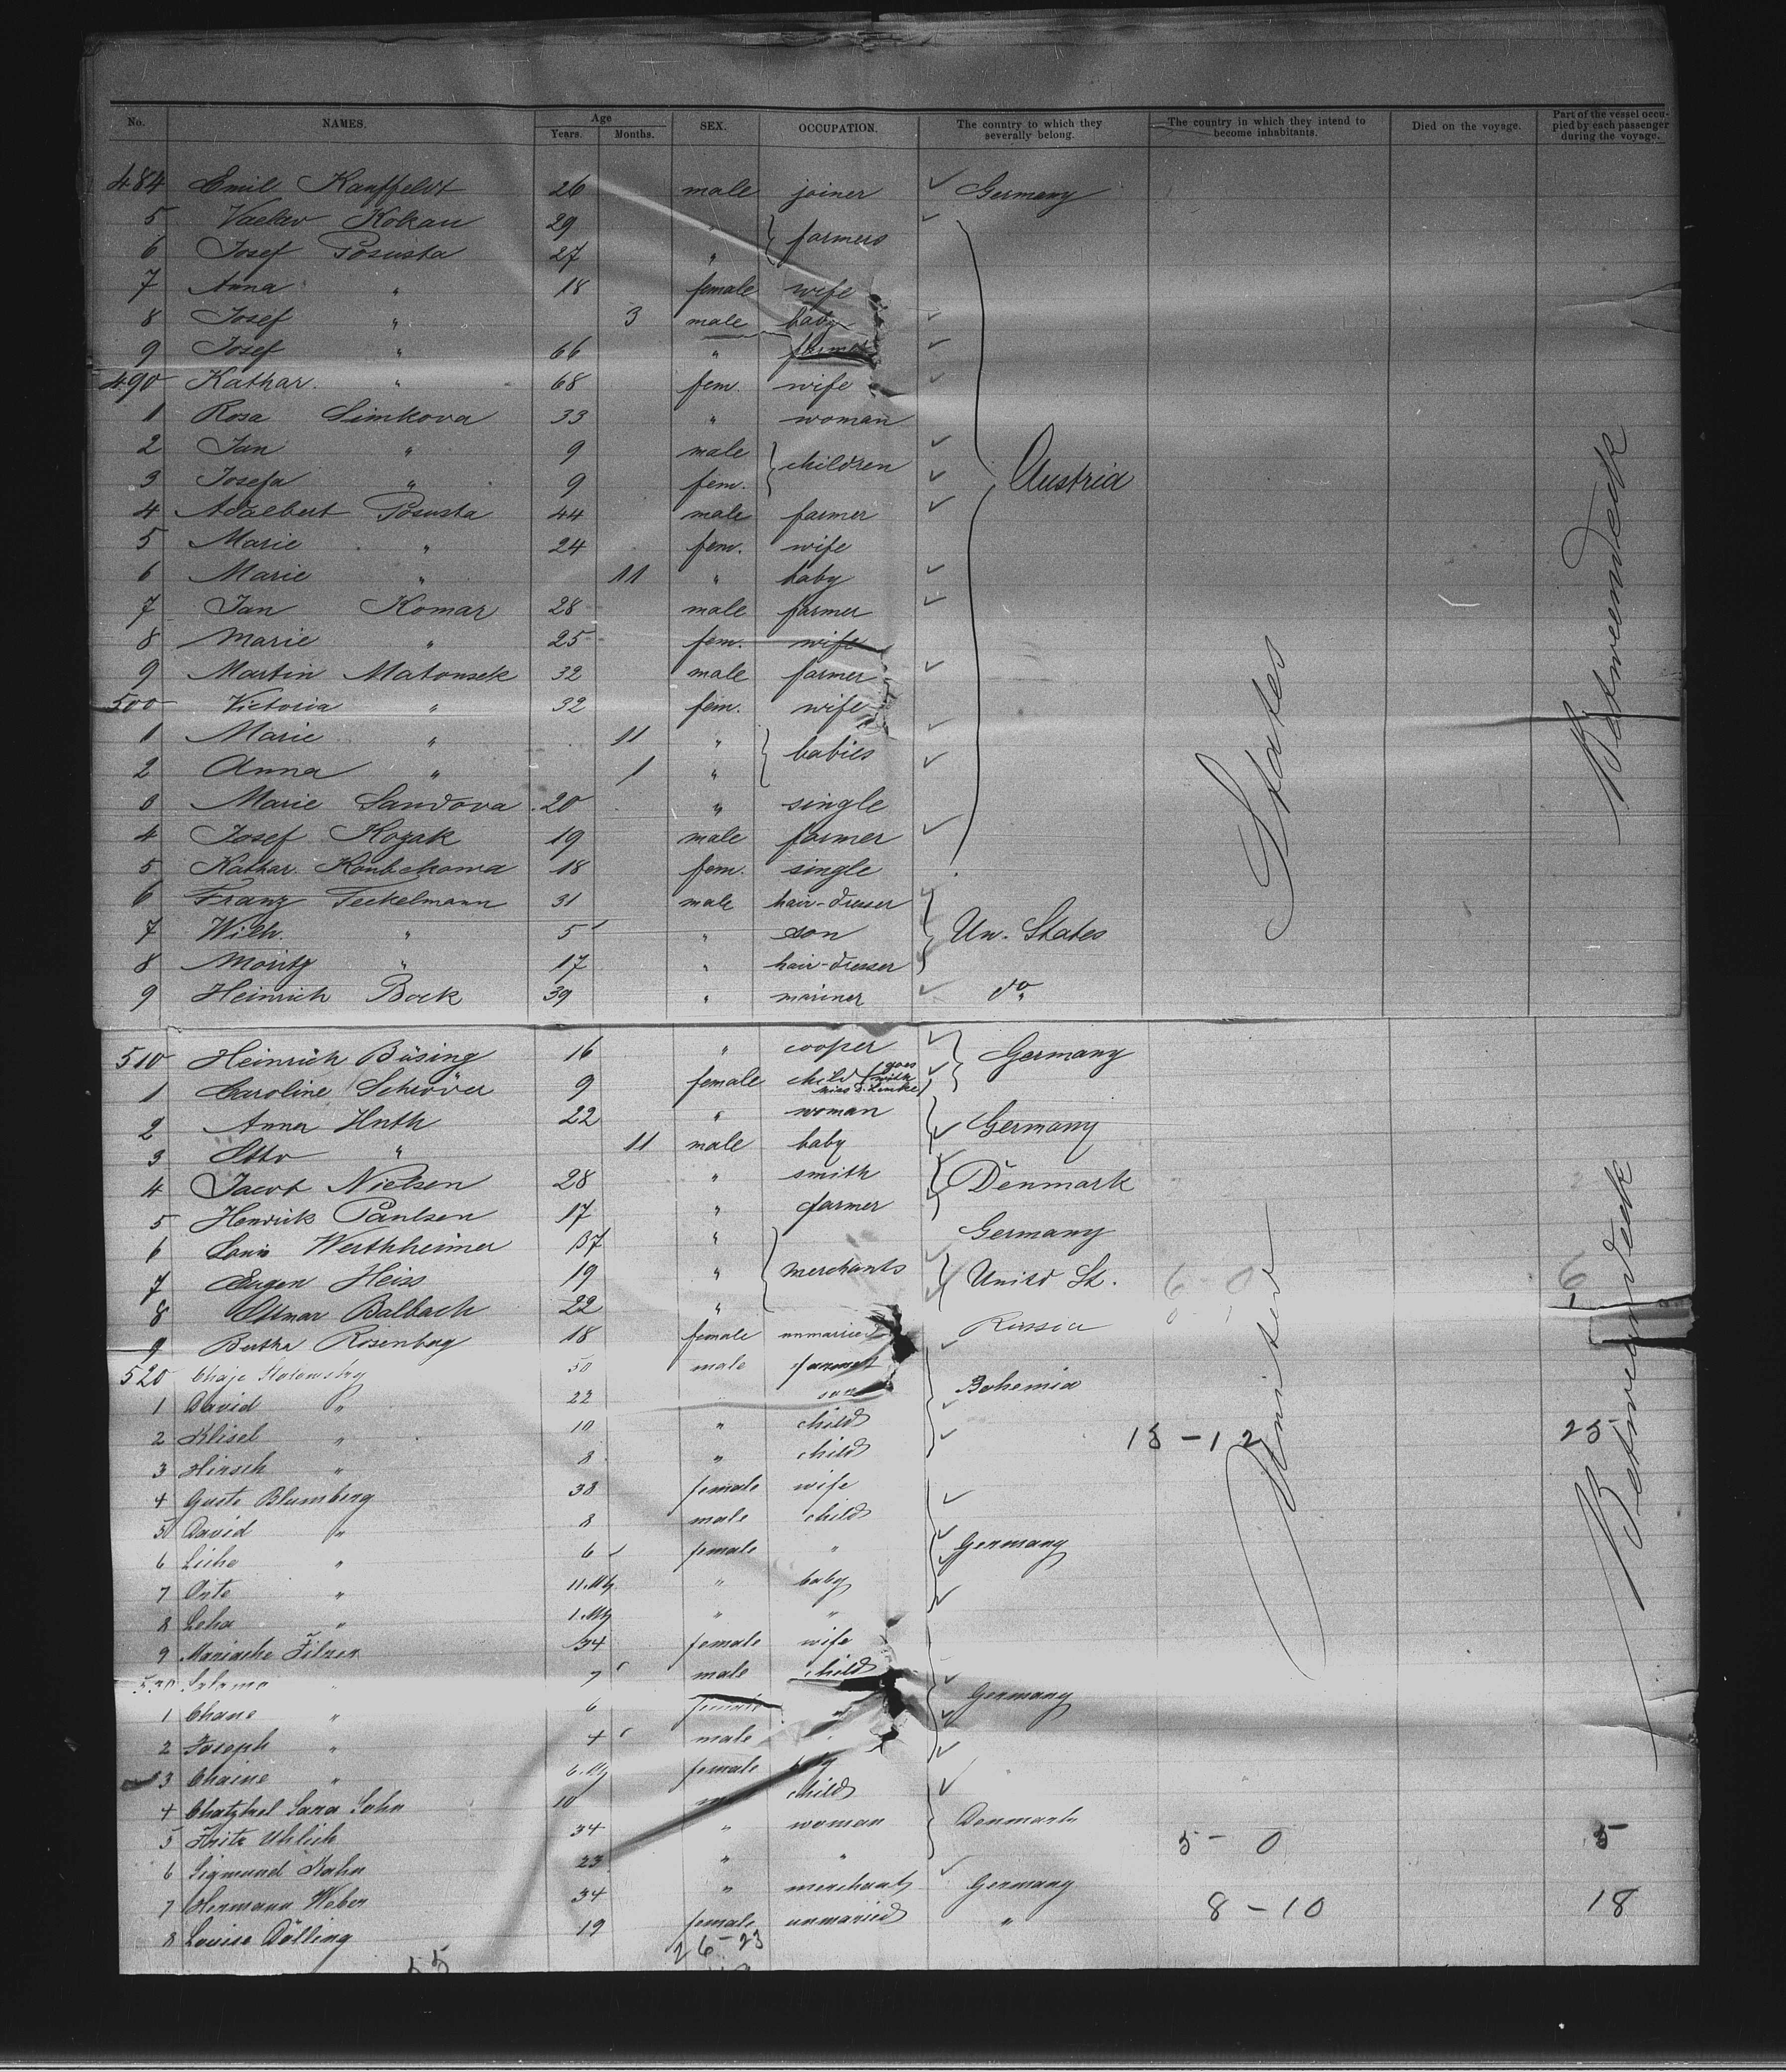 No. NAMES. Age Years. Months. SEX. OCCUPATION. The country to which they severally belong. The country in which they intend to become inhabitants. Died on the voyage. Part of the vessel occupied by each passenger during the voyage.
484 Emil Kauffeldt 26 male joiner Germany
5 Vaclav Kokan 29 " farmers
6 Josef Posusta 27 "
7 Anna " 18 female wife
8 Josef " 3 male baby
9 Josef " 66 " farmer
490 Kathar. " 68 fem. wife
1 Rosa Simkova 33 " woman
2 Jan " 9 male children
3 Josefa " 9 fem. Austria
4 Adalbert Posusta 44 male farmer
5 Marie " 24 fem. wife
6 Marie " 11 " baby
7 Jan Komar 28 male farmer
8 Marie " 25 fem. wife
9 Martin Matousek 32 male farmer
500 Victoria " 32 fem. wife
1 Marie " 11 " babies
2 Anna " 1 "
3 Marie Sandova 20 " single
4 Josef Kozak 19 male farmer
5 Kathar. Koubekowa 18 fem. single
6 Franz Teckelmann 31 male hair-dresser
7 Wilh. " 5 " son Un. States
8 Moritz " 17 " hair-dresser
9 Heinrich Bock 39 " mariner do
States
Betweendeck
510 Heinrich Büsing 16 " cooper Germany
1 Caroline Schröder 9 female child goes with
2 Anna Huth 22 " woman Germany
3 Otto " 11 male baby
4 Jacob Nielsen 28 " smith Denmark
5 Hendrik Paulsen 17 " farmer
6 Louis Werthheimer 37 " merchants Germany
7 Eugen Heiss 19 " United St. 6 0 6
8 Ottmar Balbach 22 "
9 Bertha Rosenberg 18 female unmarried Russia
520 Chaje 50 male farmer
1 David " 22 son Bohemia
2 " 10 " child 13-12 25
3 Hirsch " 8 " child
4 Guste Blumberg 38 female wife
5 David " 8 male child
6 Liebe " 6 female " Germany
7 " 11 Mts " baby
8 Leha " 1 Mts " "
9 34 female wife
530 " 7 male child
1 Chane " 6 female " Germany
2 Joseph " 4 male "
3 Chaine " 6 female baby
4 Sara 10 child
5 Fritz Uhlich 34 " woman Denmark 5-0 5
6 Sigmund Kahn 23 " "
7 Hermann Weber 34 " merchants Germany 8-10 18
8 Louise Dölling 19 female unmarried "
26-23
55
United
Betweendeck